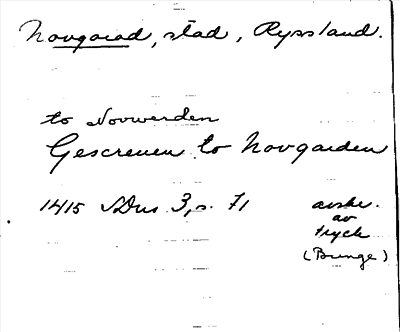 Novgorod, stad, Ryssland.
to Novwerden
Gescreuen to Novgarden
1415 SDns 3, s. 71 avskr.
av
tryck
(Bunge)